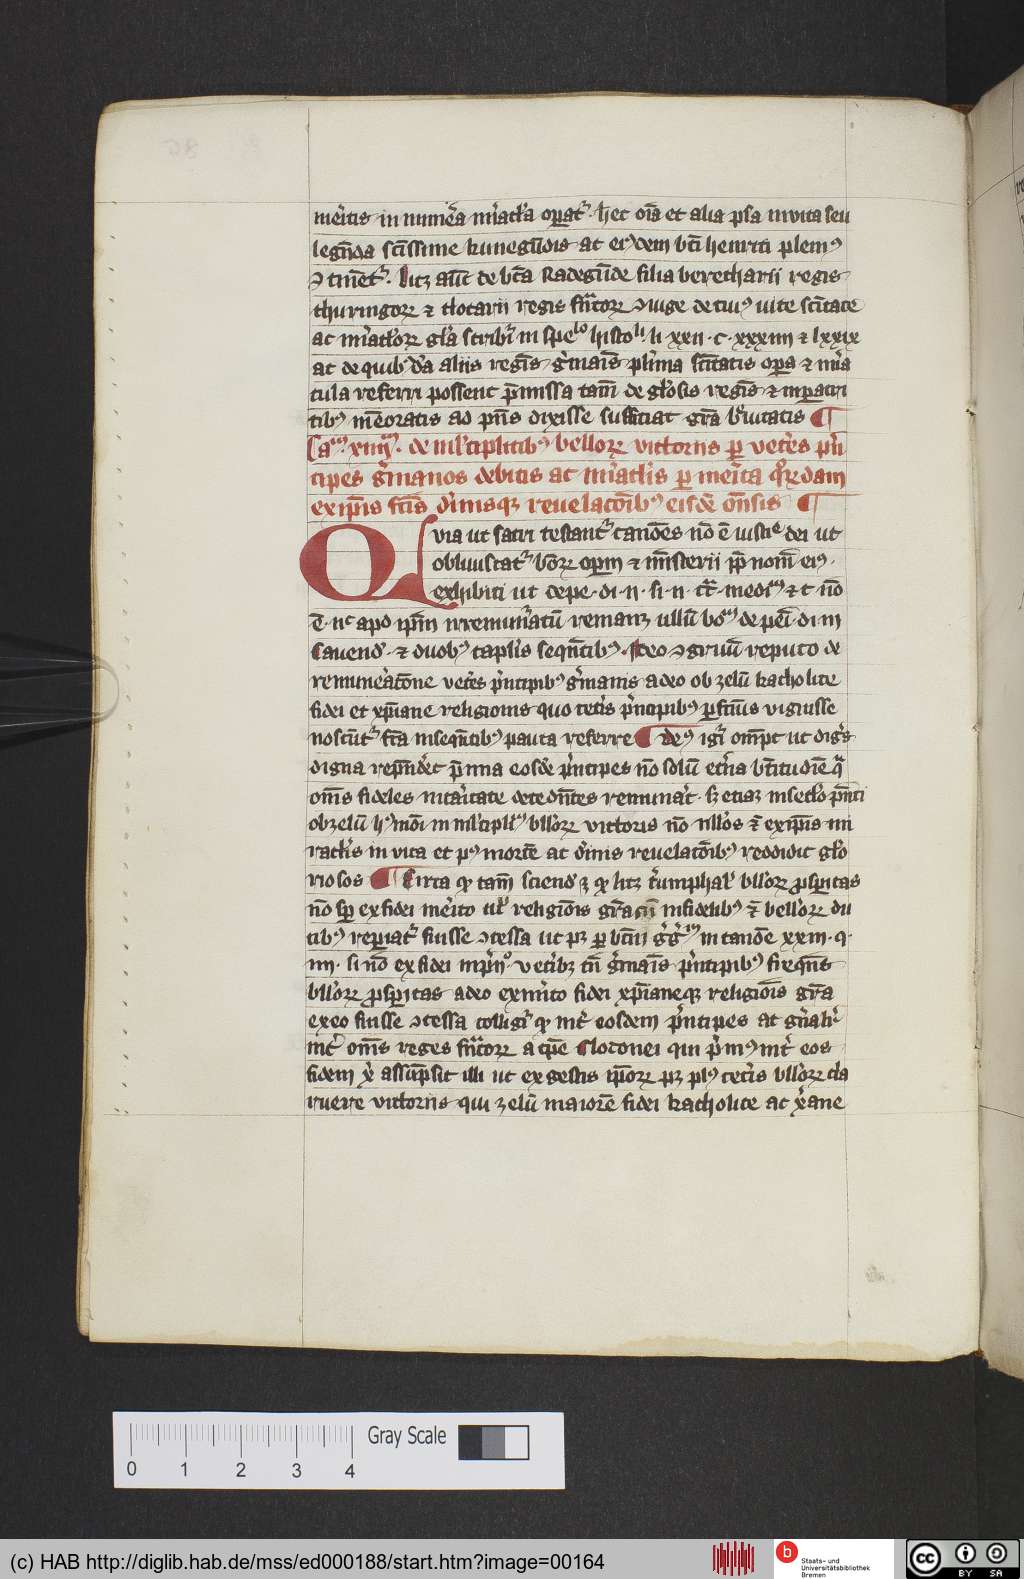 meritis in numera miracula operatur. hec oia et alia ipsa in vita seu
legenda scissime kunegundis ac eiusdem bti henrici plenius
continetur. licz aut de bta Radegunde filia berecharii regis
thuringorum et clotarii regis francorum coniuge de cuius vite scitate
ac miraculorum gloria scribitur in speculo histo. li. xxii. c. xxxiiii et lxxix
ac de quibusda aliis reginis germanis plurima sanctitatis opera et mira
cula referri possent premissa tamen de gloriosis reginis et imperatri
cibus memoratis ad presens dixisse sufficiat gratia brevitatis
Cam. xiiii. de multiplicibus bellorum victoriis per veteres prin
cipes germanos debitis ac miraculis per merita quorundam
ex ipsis sanctis divinisque revelacionibus eisdem ostensis
Qvia ut sacri testantur canones non est iusticie dei ut
obliviscatur bonorum operum et ministerii pro nomine eius
exhibiti ut de pe. di. ii. si. n. c. non
est. nec apud ipsum irremuneratum remanet ullum bonum de peni. di. iii
cavendum. et duobus capitulis sequentibus. Ideo congruum reputo de
remuneracione veteris principibus germanis adeo ob zelum katholice
fidei et xpiane religionis quo ceteris principibus perfectius viguisse
noscuntur facta in sequentibus pauca referre deus igitur omnipotens ut dignis
digna rependeret premia eosdem principes non solum eterna beatitudine qua
omnes fideles in caritate decedentes remunerat. sed etiam in seculo presenti
ob zelum huiusmodi in multiplicium bellorum victoriis non illos eciam ex ipsis mi
raculis in vita et post mortem ac divinis revelacionibus reddidit glo
riosos Circa quod tamen sciendum est quod licet triumphalis bellorum prosperitas
non semper ex fidei merito vel religionis gratia cum infidelibus eciam bellorum du
cibus reperiatur fuisse concessa ut patet per beatum gregorium in canone xxiii. q.
iiii. si non ex fidei veteribus tamen germanis principibus frequens
bellorum prosperitas adeo ex merito fidei xpianeque religionis gratia
ex eo fuisse concessa colligitur quod inter eosdem principes ac generaliter
inter omnes reges francorum a tempore Clodonei qui primus inter eos
fidem xpi assumpsit illi ut ex gestis ipsorum patet plus ceteris bellorum cla
ruere victoriis qui zelum maiorem fidei katholice ac xpiane
Gray Scale
0 1 2 3 4
(c) HAB http://diglib.hab.de/mss/ed000188/start.htm?image=00164
b Staats- und
Universitätsbibliothek
Bremen
cc BY SA